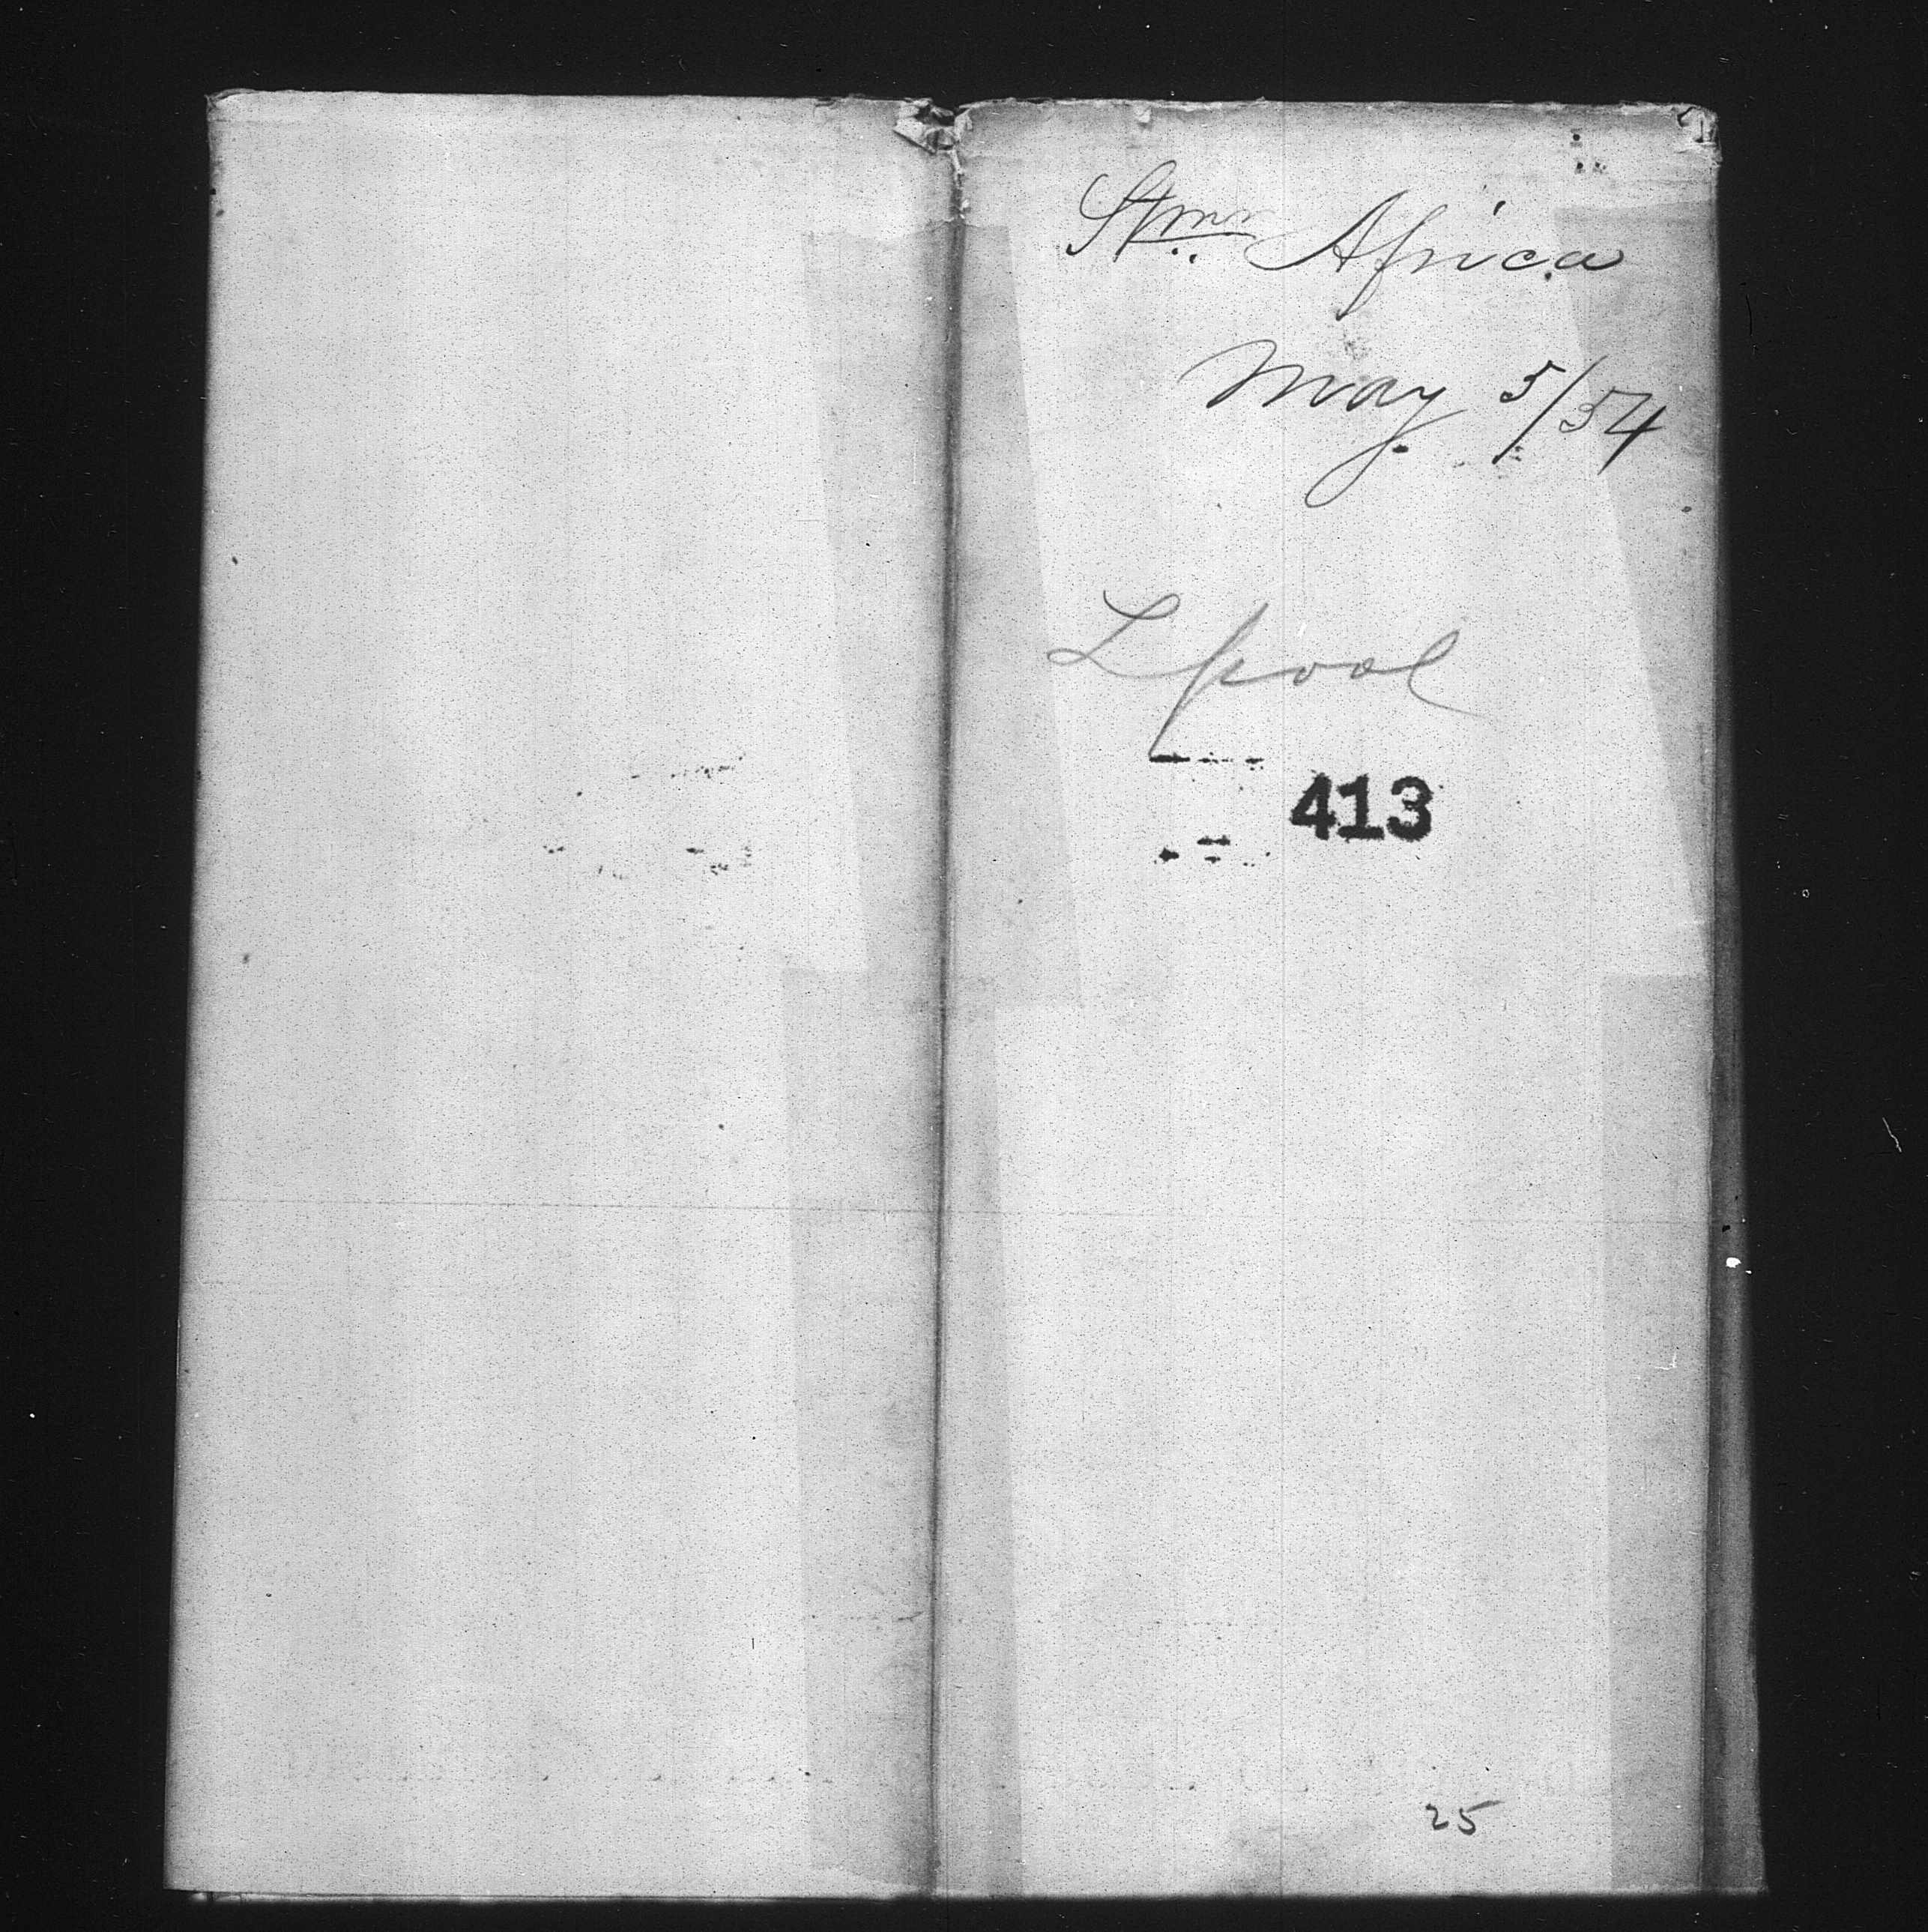 Stmr Africa
May 5/54
Lpool
413
25